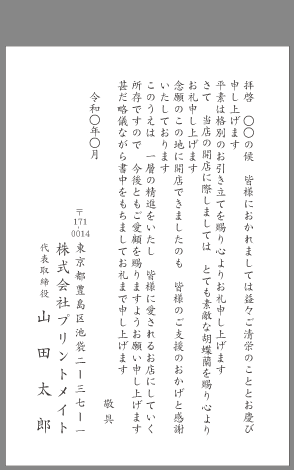 拝啓　〇〇の候　皆様におかれましては益々ご清栄のこととお慶び
申し上げます
平素は格別のお引き立てを賜り心よりお礼申し上げます
さて　当店の開店に際しましては　とても素敵な胡蝶蘭を賜り心より
お礼申し上げます
念願のこの地に開店できましたのも　皆様のご支援のおかげと感謝
いたしております
このうえは　一層の精進をいたし　皆様に愛されるお店にしていく
所存ですので　今後ともご愛顧を賜りますようお願い申し上げます
甚だ略儀ながら書中をもちましてお礼まで申し上げます
敬具
令和〇年〇月
〒171-0014
東京都豊島区池袋二ー三七ー一
株式会社プリントメイト
代表取締役　山田太郎